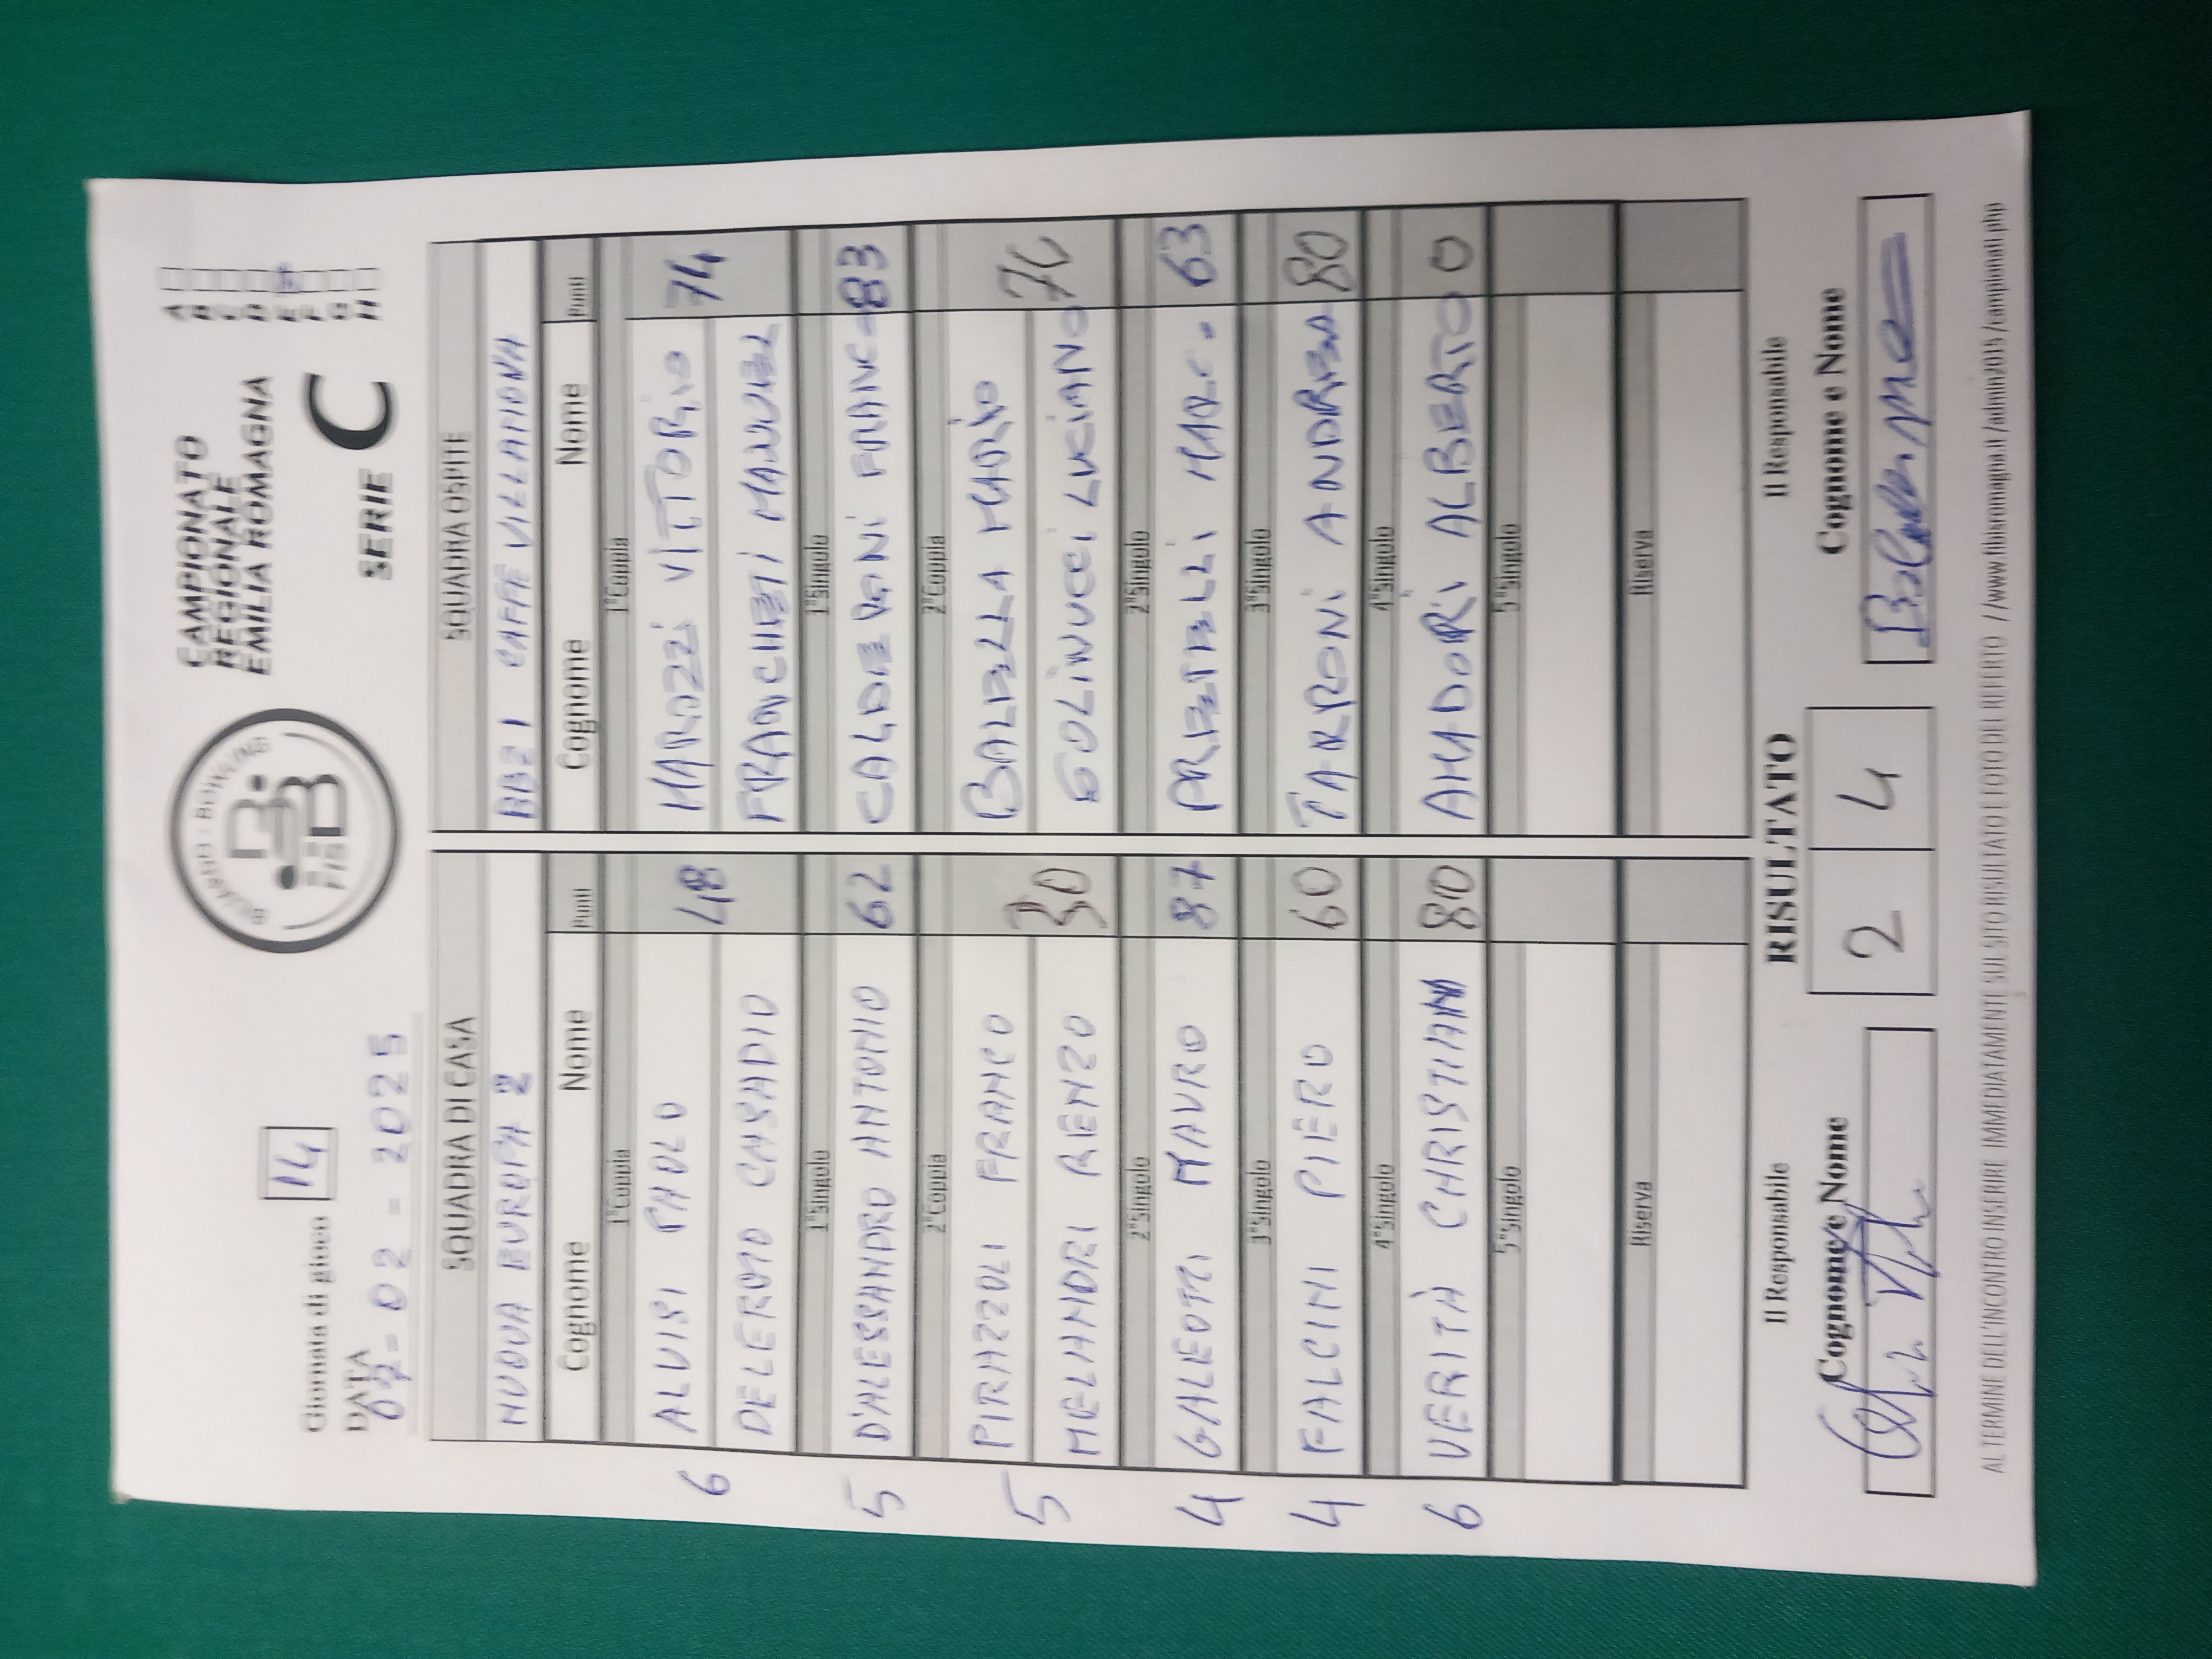 Giornata di gioco 14
DATA
07 - 02 - 2025
BILIARDO - BOWLING
FISB
CAMPIONATO
REGIONALE
EMILIA ROMAGNA
SERIE C
A
B
C
D
E
F
G
H
SQUADRA DI CASA
NUOVA EUROPA 2
Cognome Nome Punti
1°Coppia
ALVISI PAOLO
48
DELEROTO CASADIO
1°Singolo
D'ALESSANDRO ANTONIO 62
2°Coppia
PIRAZZOLI FRANCO
30
MELANDRI RENZO
2°Singolo
GALEOTTI MAURO 87
3°Singolo
FALCINI PIERO 60
4°Singolo
VERITÀ CHRISTIAN 80
5°Singolo
Riserva
6
5
5
4
4
6
SQUADRA OSPITE
BBZ 1 CAFFÈ VILLANOVA
Cognome Nome Punti
1°Coppia
MAROZZI VITTORIO
74
FRANCHETI MANUEL
1°Singolo
CALDERONI FRANC 83
2°Coppia
BALELLA MARIO
GOLINUCCI LUCIANO
2°Singolo
MARCO 63
3°Singolo
TARRONI ANDREA 80
4°Singolo
AMADORI ALBERTO 0
5°Singolo
Riserva
Il Responsabile
Cognome e Nome
RISULTATO
2 4
Il Responsabile
Cognome e Nome
AL TERMINE DELL'INCONTRO INSERIRE IMMEDIATAMENTE SUL SITO RISULTATO E FOTO DEL REFERTO //www.fibsromagna.it/admin2015/campionati.php